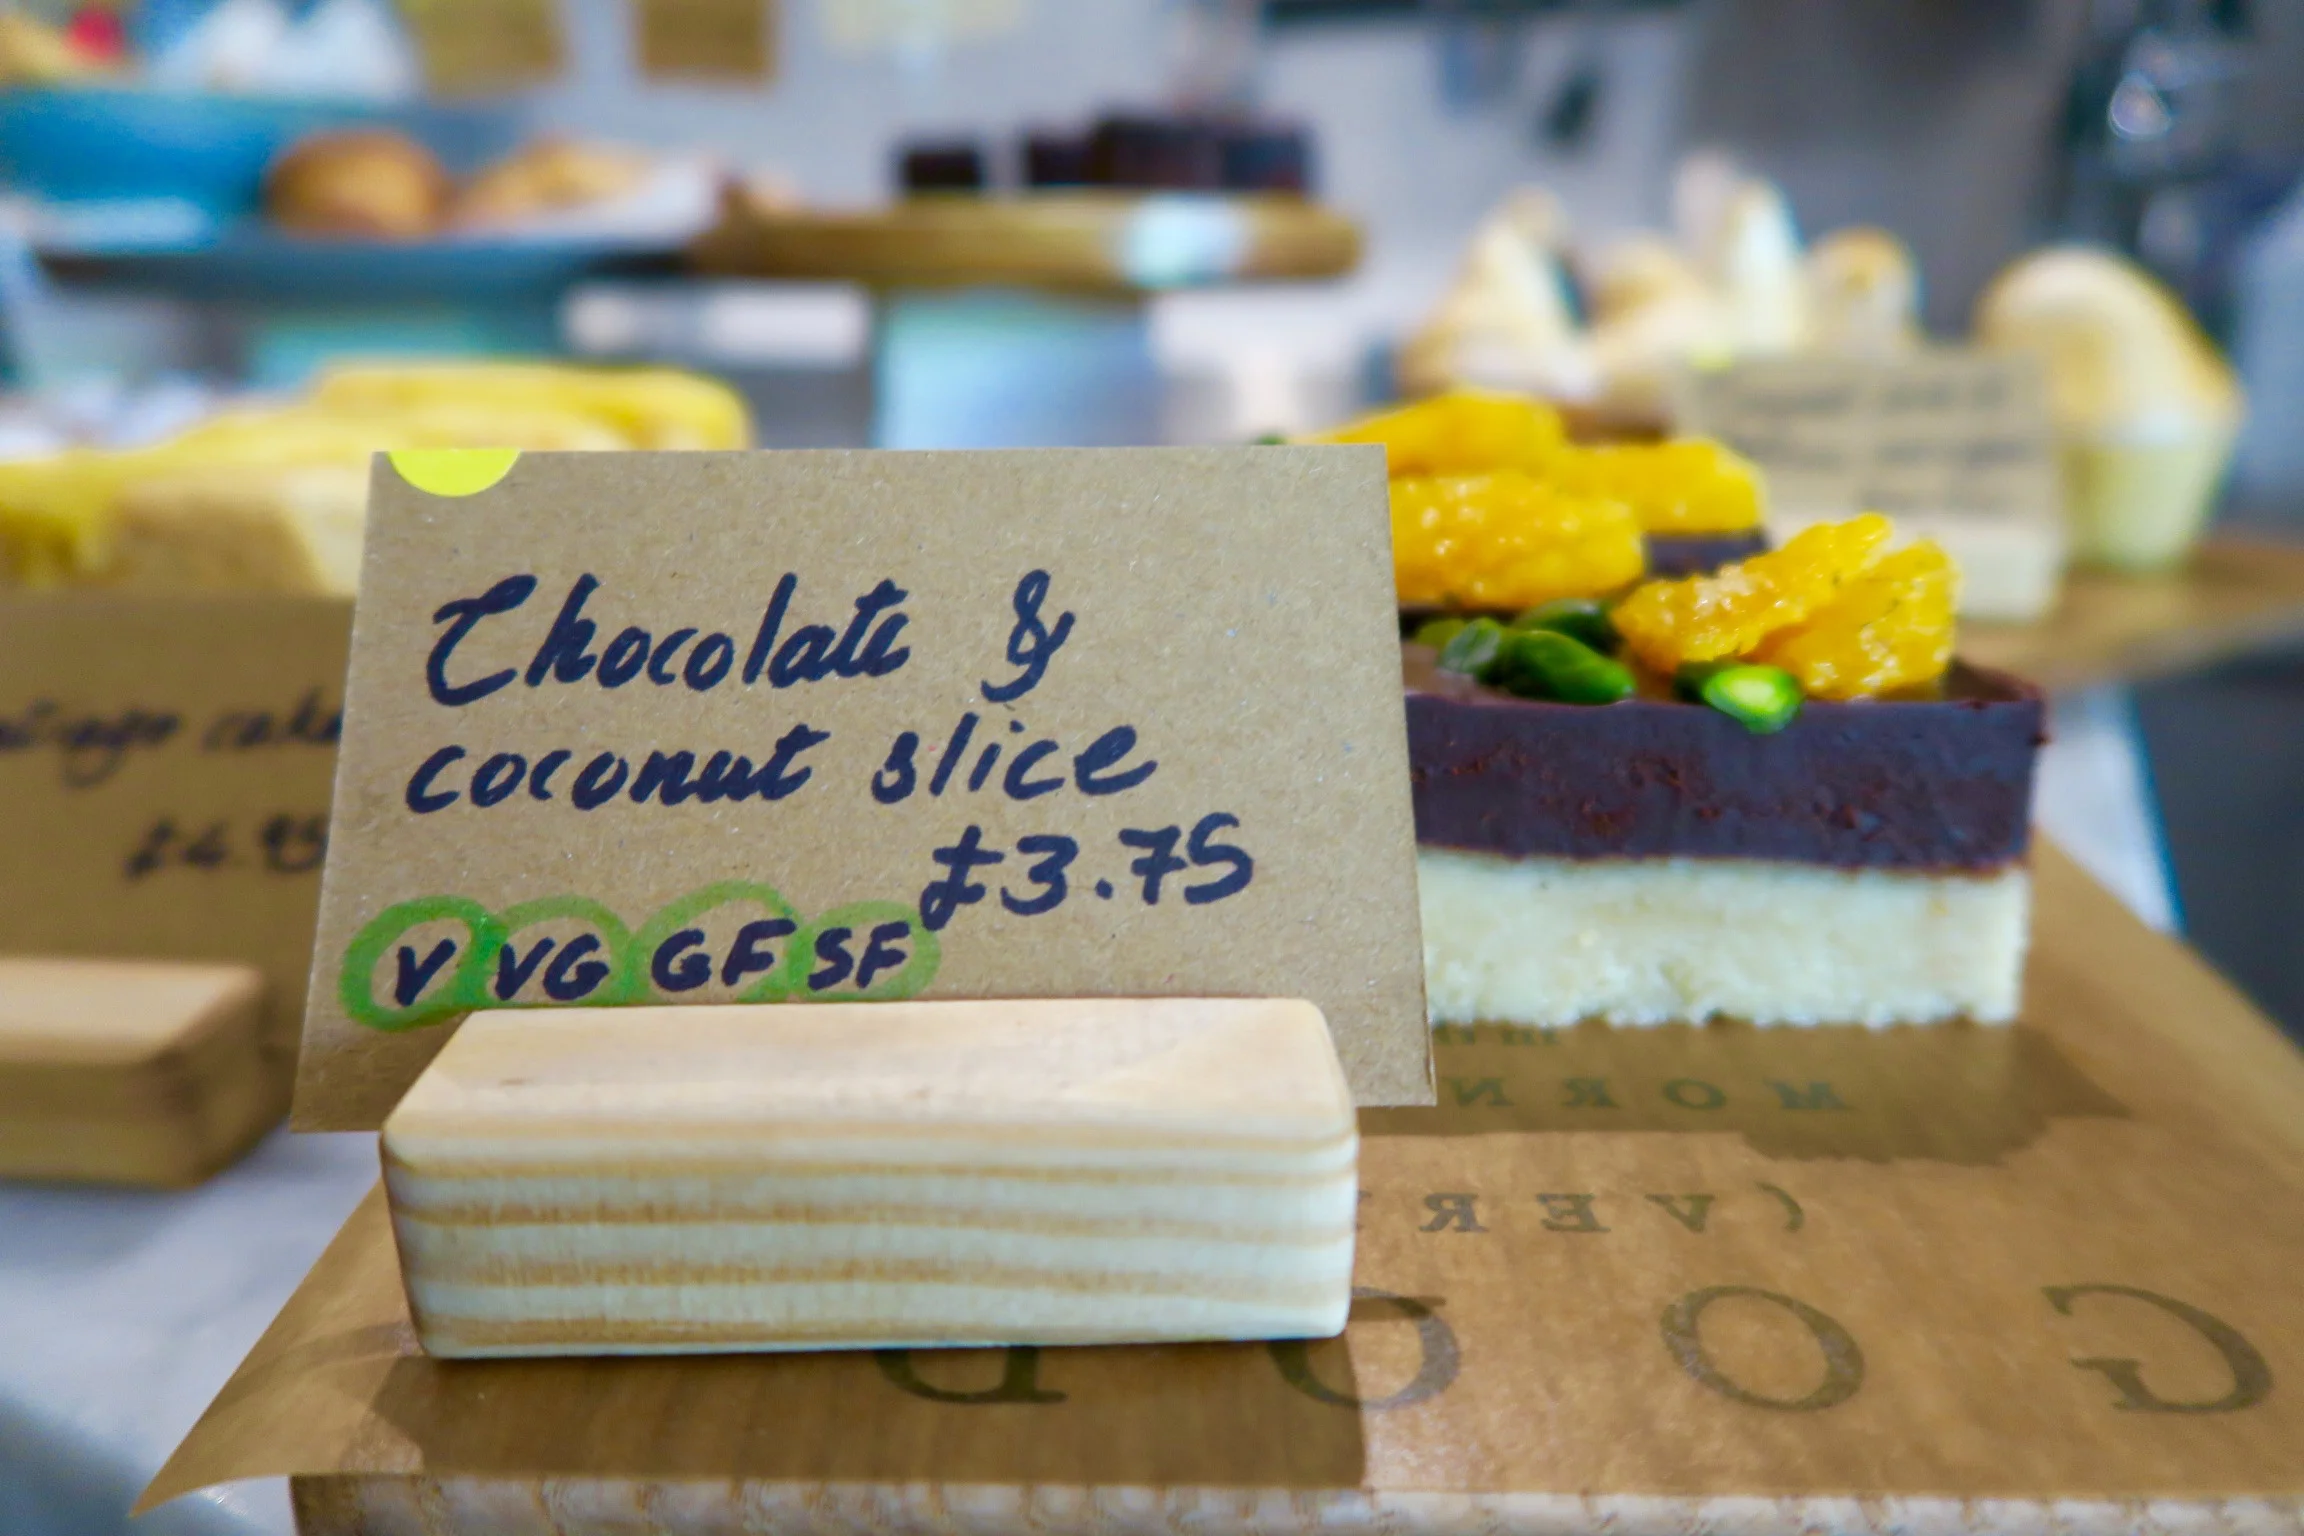 Chocolate &
coconut slice
£3.75
V VG GF SF
cake
MORN
(VER
GOOD